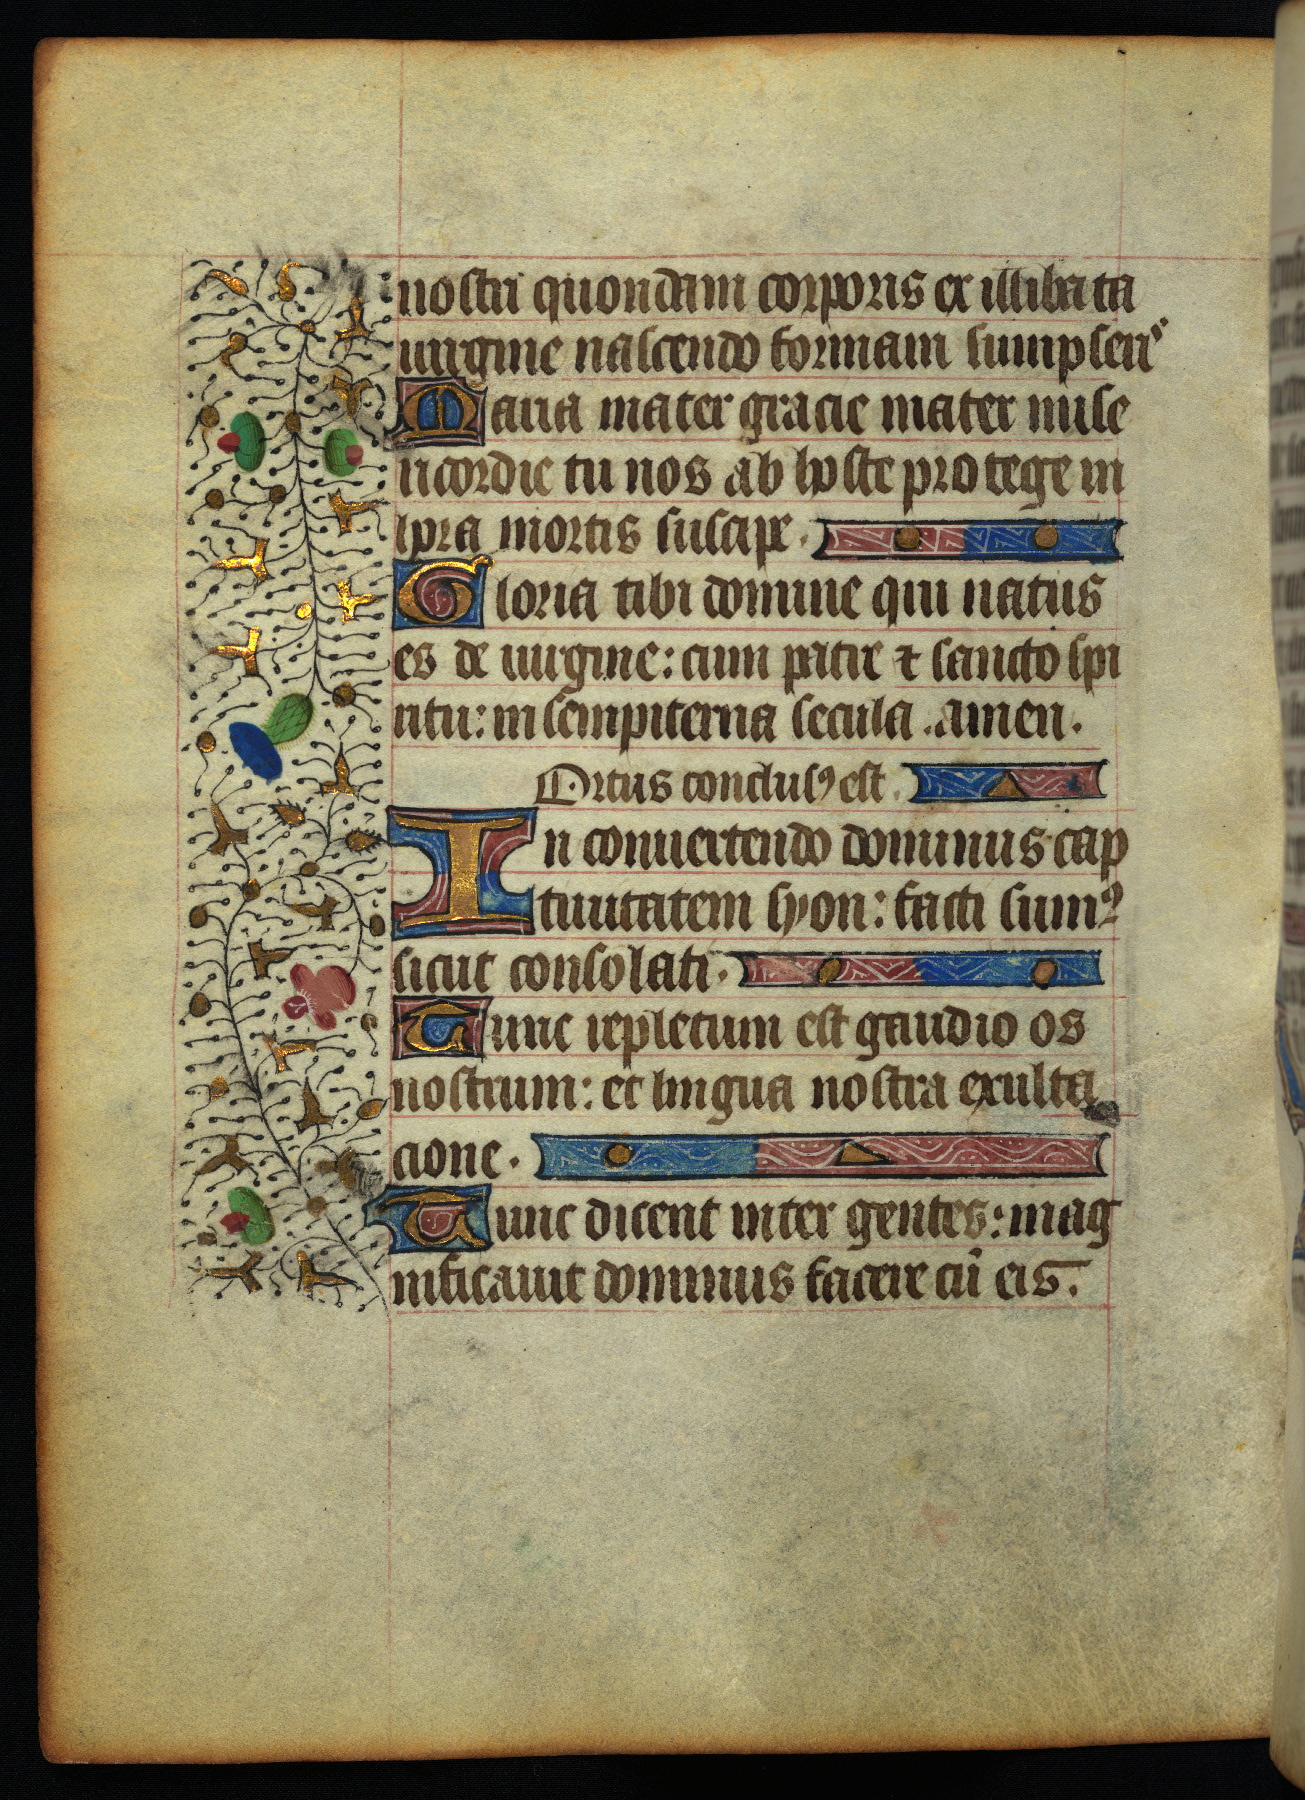 nostri quondam corporis ex illibata
uirgine nascendo formam sumpser̉
Maria mater gracie mater mise
ricordie tu nos ab hoste protege in
hora mortis suscipe.
Gloria tibi domine qui natus
es de uirgine: cum patre ⁊ sancto spi
ritu: in sempiterna secula. amen.
Ortus conclusꝰ est.
In conuertendo dominus cap
tiuitatem syon: facti sumꝰ
sicut consolati.
Tunc repletum est gaudio os
nostrum: et lingua nostra exulta
cione.
Tunc dicent inter gentes: mag
nificauit dominus facere cū eis.